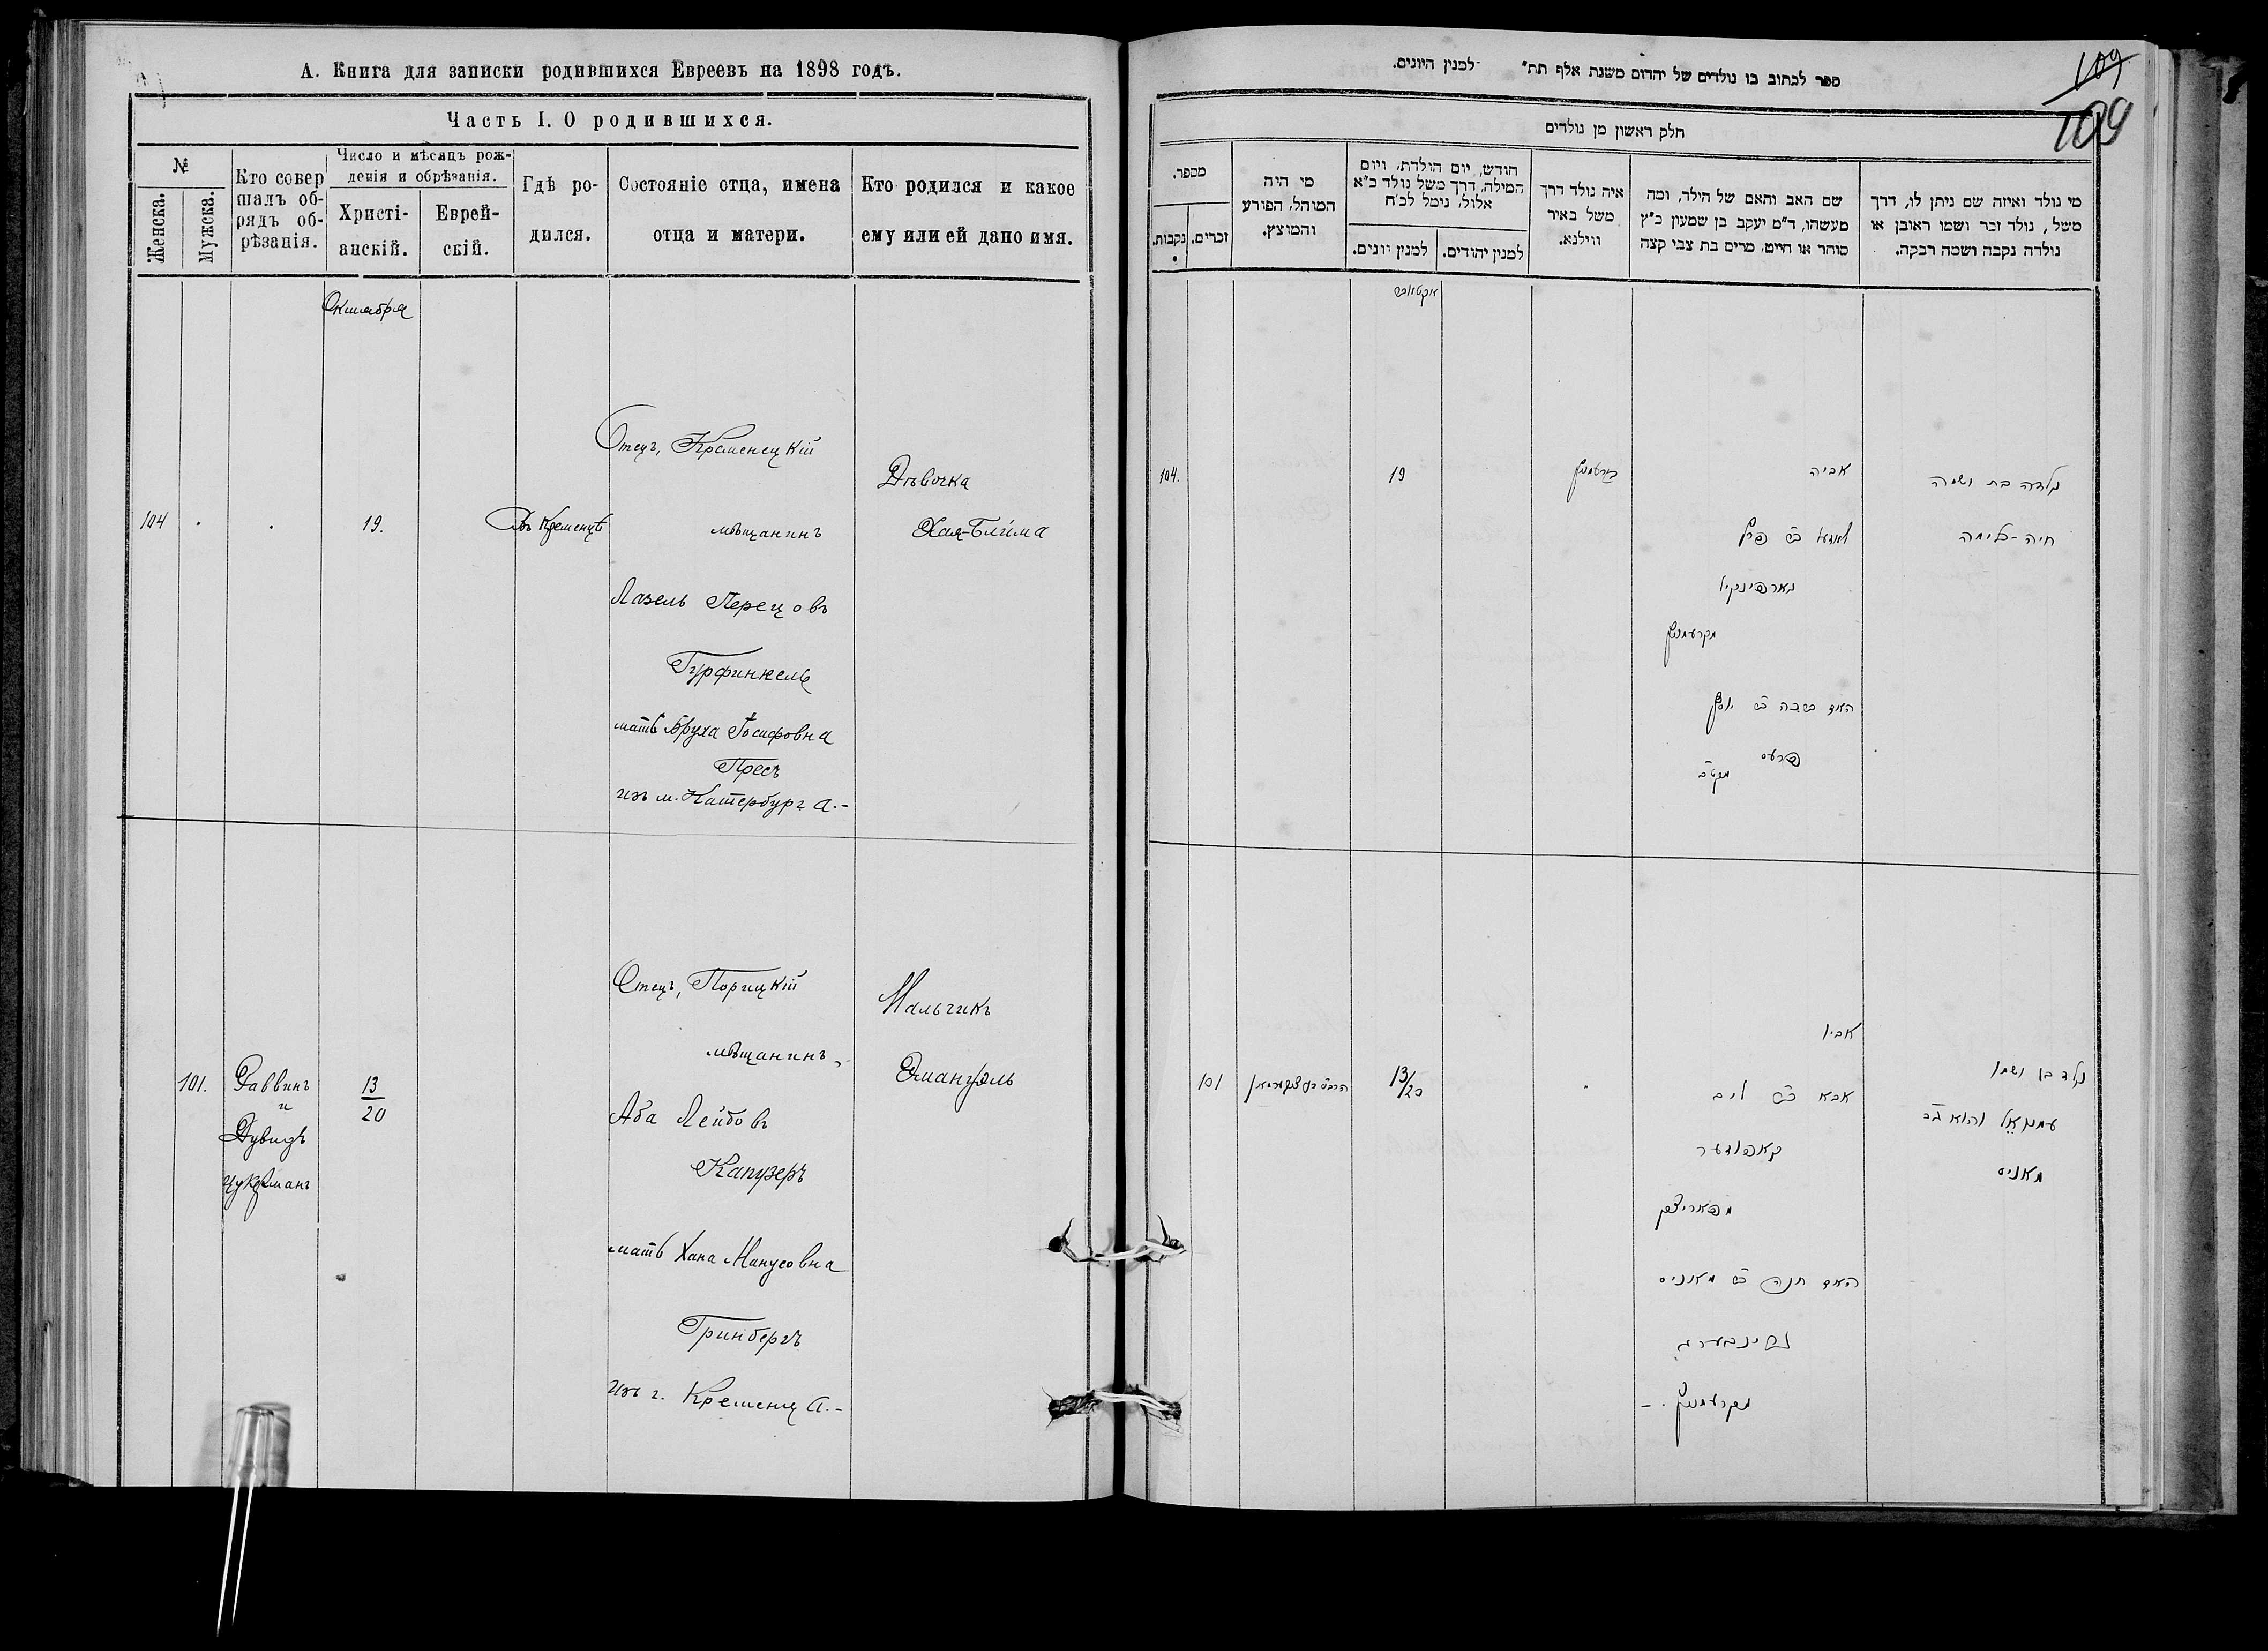 А. Книга для записки родившихся Евреевъ на 1898 годъ.
Часть I. О родившихся.
№
Женска.
Мужска.
Кто совер
шалъ об-
рядъ об-
рѣзанія.
Число и мѣсяцъ рож-
денія и обрѣзанія.
Христі-
анскій.
Еврей-
скій.
Гдѣ ро-
дился.
Состояніе отца, имена
отца и матери.
Кто родился и какое
ему или ей дано имя.
Октября
104
19.
Въ Кременцѣ
Отецъ, Кременецкій
мѣщанинъ
Лазель Перецовъ
Гурфинкель
мать Бруха Іосифовна
Пресъ
изъ м. Катербурга.-
Дѣвочка
Хая-Блима
101.
Раввинъ
и
Дувидъ
Цукерманъ
13
20
Отецъ, Порицкій
мѣщанинъ,
Аба Лейбовъ
Капузеръ
мать Хана Манусовна
Гринбергъ
изъ г. Кременца.-
Мальчикъ
Эмануэль
ספר לכתוב בו נולדים של יהדום משנת אלף תת״ למנין היונים.
109
109
חלק ראשון מן נולדים
מספר.
נקבות.
זכרים.
מי היה
המוהל, הפורע
והמוצץ.
חודש, יום הולדת, ויום
המילה, דרך משל נולד כ״א
אלול, נימל לכ״ח
למנין יונים.
למנין יהודים.
איה נולד דרך
משל באיר
ווילנא.
שם האב והאם של הילד, ומה
מעשהו, ד״מ יעקב בן שמעון כ״ץ
סוחר או חייט, מרים בת צבי קצה
מי נולד ואיזה שם ניתן לו, דרך
משל, נולד זכר ושמו ראובן או
נולדה נקבה ושמה רבקה.
104.
19
אביה
גארפינקיל
מקרעמניץ
פרעס
נולדה בת ושמה
חיה-בלימה
101
13/20
אביו
אבא ליב
קאפוזער
מפאריצק
האם חנה מאניס
גרינבערג
מקרעמניץ.-
נולד בן ושמו
עמנואל והוא
מאניס